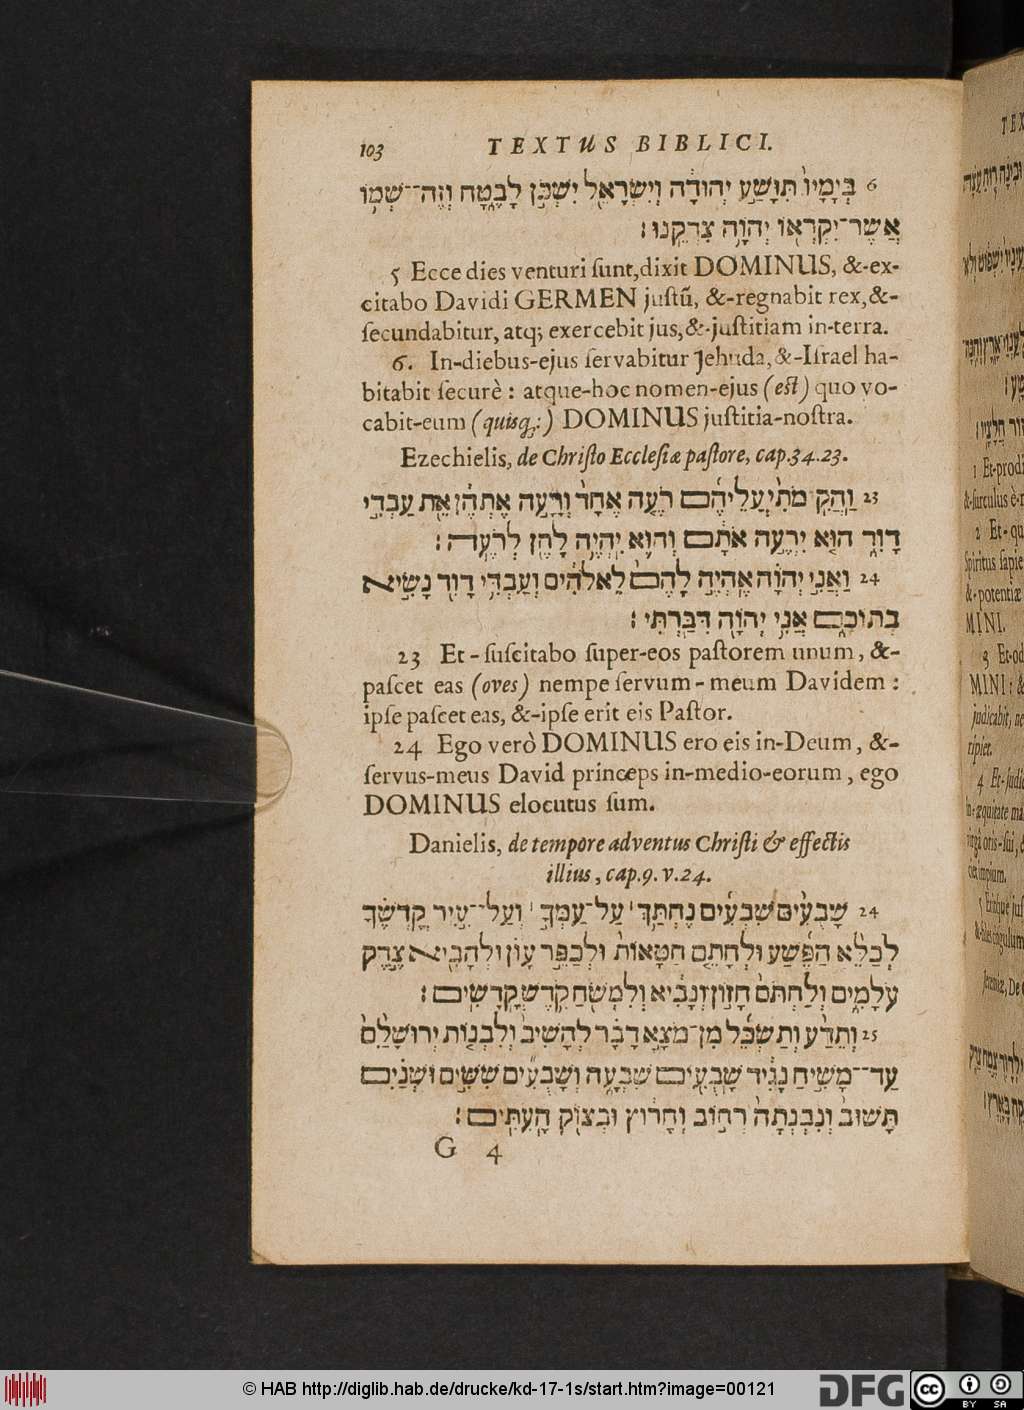 103 TEXTUS BIBLICI.
6 בְּיָמָיו֙ תִּוָּשַׁ֣ע יְהוּדָ֔ה וְיִשְׂרָאֵ֖ל יִשְׁכֹּ֣ן לָבֶ֑טַח וְזֶה־שְּׁמ֥וֹ
אֲשֶׁר־יִקְרְא֖וֹ יְהוָ֥ה צִדְקֵֽנוּ׃
5 Ecce dies venturi ſunt, dixit DOMINUS, &-ex-
citabo Davidi GERMEN juſtũ, &-regnabit rex, &-
ſecundabitur, atq; exercebit jus, &-juſtitiam in-terra.
6. In-diebus-ejus ſervabitur Jehuda, &-Iſrael ha-
bitabit ſecurè : atque-hoc nomen-ejus (eſt) quo vo-
cabit-eum (quisq;:) DOMINUS juſtitia-noſtra.
Ezechielis, de Chriſto Eccleſiæ paſtore, cap.34.23.
23 וַהֲקִמֹתִ֨י עֲלֵיהֶ֜ם רֹעֶ֤ה אֶחָד֙ וְרָעָ֣ה אֶתְהֶ֔ן אֵ֖ת עַבְדִּ֣י
דָוִ֑ד ה֚וּא יִרְעֶ֣ה אֹתָ֔ם וְה֖וּא יִהְיֶ֥ה לָהֶ֖ן לְרֹעֶֽה׃
24 וַאֲנִ֣י יְהוָ֗ה אֶהְיֶ֤ה לָהֶם֙ לֵֽאלֹהִ֔ים וְעַבְדִּ֥י דָוִ֖ד נָשִׂ֣יא
בְתוֹכָ֑ם אֲנִ֥י יְהוָ֖ה דִּבַּֽרְתִּי׃
23 Et-ſuſcitabo ſuper-eos paſtorem unum, &-
paſcet eas (oves) nempe ſervum-meum Davidem :
ipſe paſcet eas, &-ipſe erit eis Paſtor.
24 Ego verò DOMINUS ero eis in-Deum, &-
ſervus-meus David princeps in-medio-eorum, ego
DOMINUS elocutus ſum.
Danielis, de tempore adventus Chriſti & effectis
illius, cap.9. v.24.
24 שָׁבֻעִ֨ים שִׁבְעִ֜ים נֶחְתַּ֥ךְ עַֽל־עַמְּךָ֣ וְעַל־עִ֣יר קָדְשֶׁ֗ךָ
לְכַלֵּ֨א הַפֶּ֜שַׁע וּלְחָתֵ֤ם חַטָּאוֹת֙ וּלְכַפֵּ֣ר עָוֺ֔ן וּלְהָבִ֖יא צֶ֣דֶק
עֹֽלָמִ֑ים וְלַחְתֹּם֙ חָז֣וֹן וְנָבִ֔יא וְלִמְשֹׁ֖חַ קֹ֥דֶשׁ קָֽדָשִֽׁים׃
25 וְתֵדַ֨ע וְתַשְׂכֵּ֜ל מִן־מֹצָ֣א דָבָ֗ר לְהָשִׁיב֙ וְלִבְנ֤וֹת יְרוּשָׁלִַ֙ם֙
עַד־מָשִׁ֣יחַ נָגִ֔יד שָׁבֻעִ֖ים שִׁבְעָ֑ה וְשָׁבֻעִ֞ים שִׁשִּׁ֣ים וּשְׁנַ֗יִם
תָּשׁוּב֙ וְנִבְנְתָה֙ רְח֣וֹב וְחָר֔וּץ וּבְצ֖וֹק הָעִתִּֽים׃
G 4
© HAB http://diglib.hab.de/drucke/kd-17-1s/start.htm?image=00121
DFG
cc BY SA